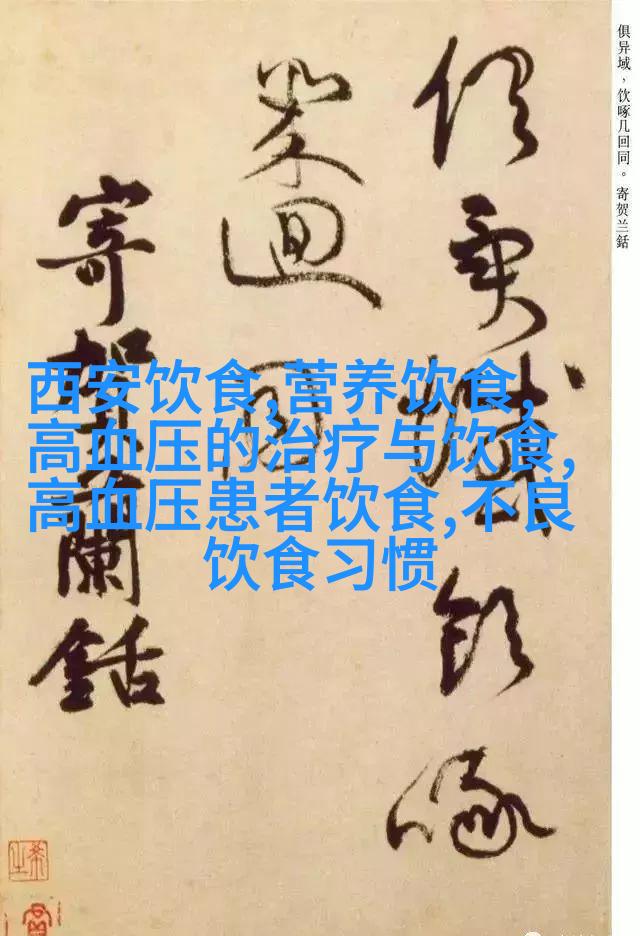 俱异域，饮啄几回同。寄贺兰銛
俱異域飲啄
幾迴同
寄賀蘭銛
西安饮食,营养饮食,
高血压的治疗与饮食,
高血压患者饮食,不良
饮食习惯